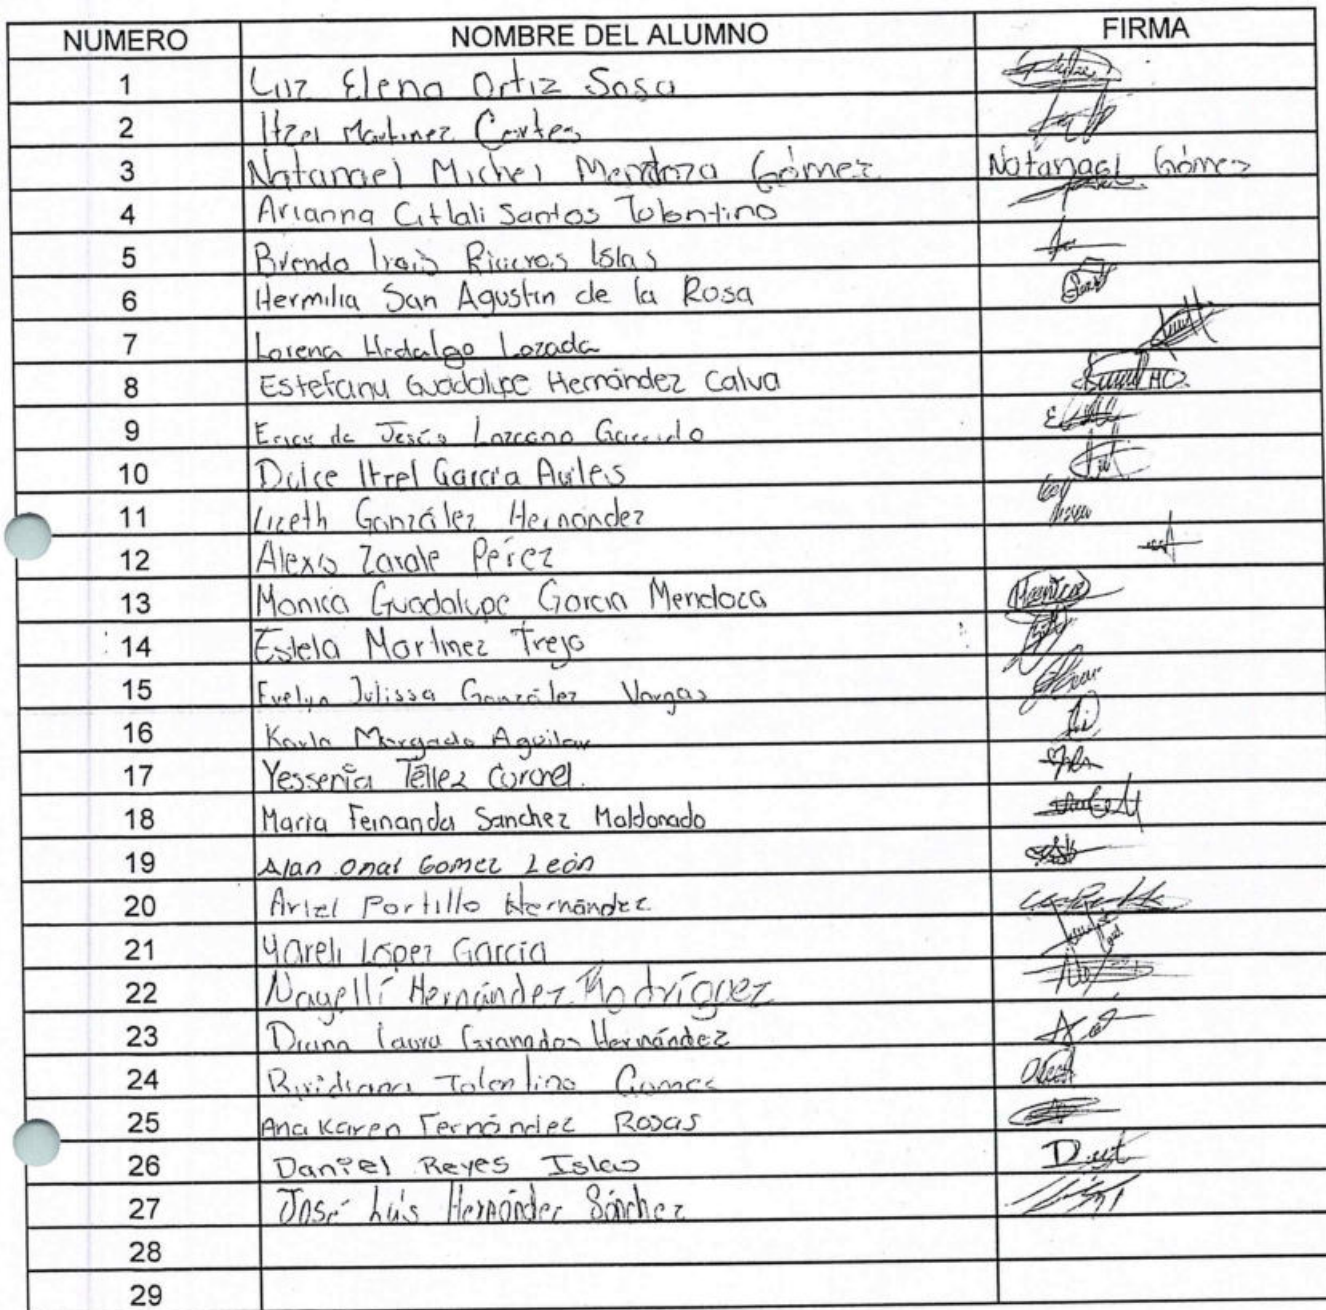 NUMERO NOMBRE DEL ALUMNO FIRMA
1 Luz Elena Ortiz Sosa
2 Itzel Martinez Cortes
3 Natanael Michel Mendoza Gómez Natanael Gómez
4 Arianna Citlali Santos Tolentino
5 Brenda Irais Islas
6 Hermilia San Agustin de la Rosa
7 Lorena Hidalgo Lozada
8 Estefany Guadalupe Hernández Calva HC.
9 Erick de Jesús Lozcano Garrido
10 Dulce Itzel García Aviles
11 Lizeth González Hernández
12 Alexis Zarate Pérez
13 Monica Guadalupe Garcia Mendoza
14 Estela Martinez Trejo
15 Evelyn Julissa González Vargas
16 Karla Morgado Aguilar
17 Yessenia Téllez Coronel.
18 Maria Fernanda Sanchez Maldonado
19 Alan Omar Gomez León
20 Ariel Portillo Hernández
21 Yareli López García
22 Nayelli Hernández Rodríguez
23 Diana Laura Granados Hernández
24 Tolentino Gomez
25 Ana Karen Fernández Rosas
26 Daniel Reyes Islas
27 José Luis Hernández Sánchez
28
29